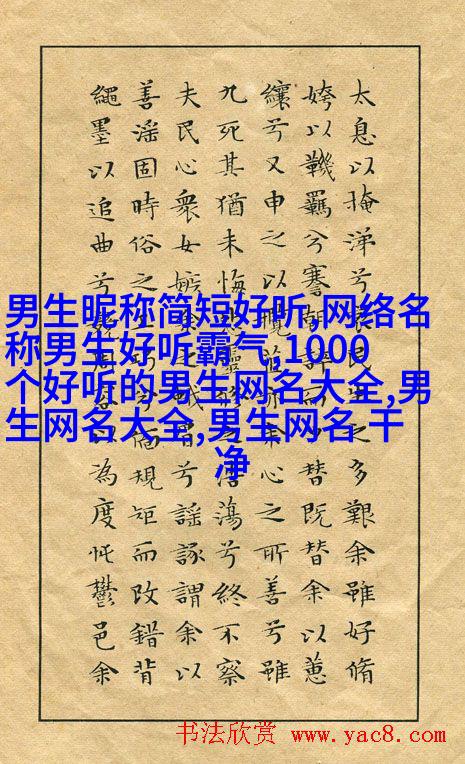 太息以掩涕兮哀民之多艱余雖好脩
姱以鞿羈兮謇朝而替既替余以蕙
纕兮又申之以攬茝余心之所善兮雖
九死其猶未悔靈之蕩兮終不察
夫民心衆女嫉余之兮謠諑謂余以
善淫固時俗之工巧兮偭規矩而改錯背
繩墨以追曲兮以為度忳鬱邑余
男生昵称简短好听,网络名
称男生好听霸气,1000
个好听的男生网名大全,男
生网名大全,男生网名 干
净
书法欣赏 www.yac8.com